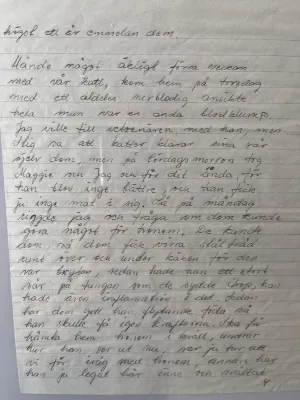 något ett år emellan dem.
Hände något förra veckan
med vår katt, kom hem på torsdag
med ett alldeles nerblodig ansikte
hela man var en enda blodklump.
Jag ville till veterinären med han, men
Stig sa att katter klarar sina sår
själv dom, men på lördagsmorron tog
Maggie och Jag och för det ända, för
han blev inge bättre, och han fick
ju inge mat i sig. Så på måndag
ringde jag och fråga om dom kunde
göra något för honom. De kunde
dom, så dom fick virra ståltråd
runt över och under käken för den
var bruten, sedan hade han ett stort
sår på tungan som de sydde ihop, han
hade även inflamation i det sedan
har dom gett han flytande föda så
han skulle få igen krafterna. Ska få
hämta hem honom i kväll, undrar
hur han ser ut nu, men ju tur att
vi för iväg med honom, annars har
han ju legat här inne och svultat